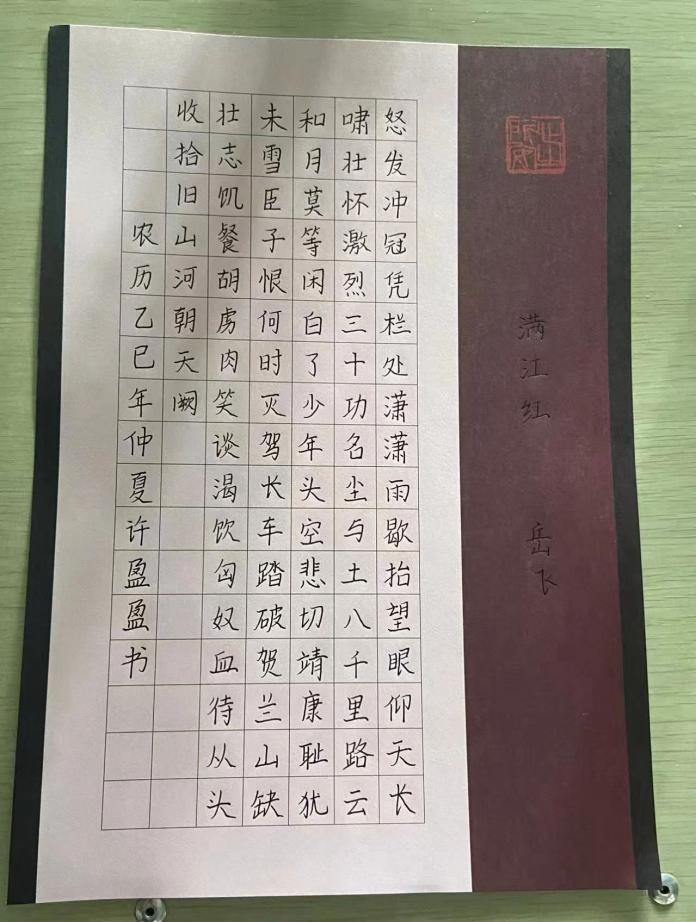 满江红 岳飞
怒发冲冠凭栏处潇潇雨歇抬望眼仰天长
啸壮怀激烈三十功名尘与土八千里路云
和月莫等闲白了少年头空悲切靖康耻犹
未雪臣子恨何时灭驾长车踏破贺兰山缺
壮志饥餐胡虏肉笑谈渴饮匈奴血待从头
收拾旧山河朝天阙
农历乙巳年仲夏许盈盈书